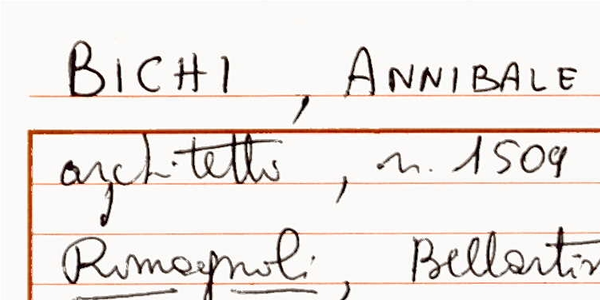 BICHI, ANNIBALE
architetto, n. 1509
Romagnoli,